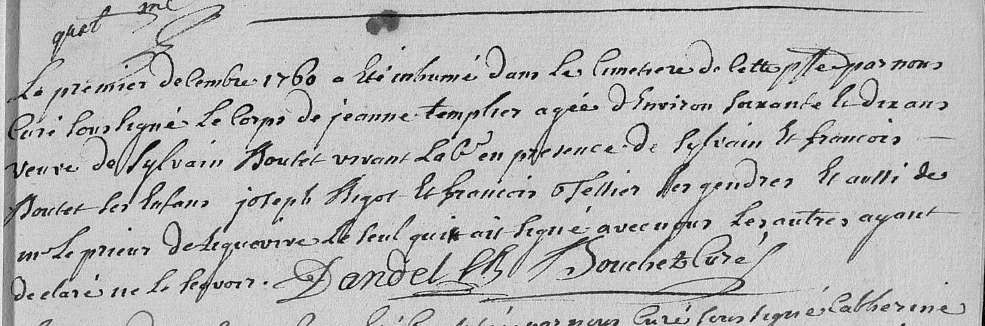 Le premier decembre 1760 a Eté inhumé dans Le Cimetiere de Cette psse par nous
Curé soussigné Le Corps de jeanne templier agée d'Environ soixante Et dix ans
veuve de Sylvain Boutet vivant Labr en presence de Sylvain Et francois
Boutet ses Enfans joseph Rigot Et francois Tellier ses gendres Et aussi de
mr Le prieur de Le seul qui ait signé avec nous Les autres ayant
declaré ne Le sçavoir. Dandel Bouchet Curé
par nous Curé soussigné Catherine